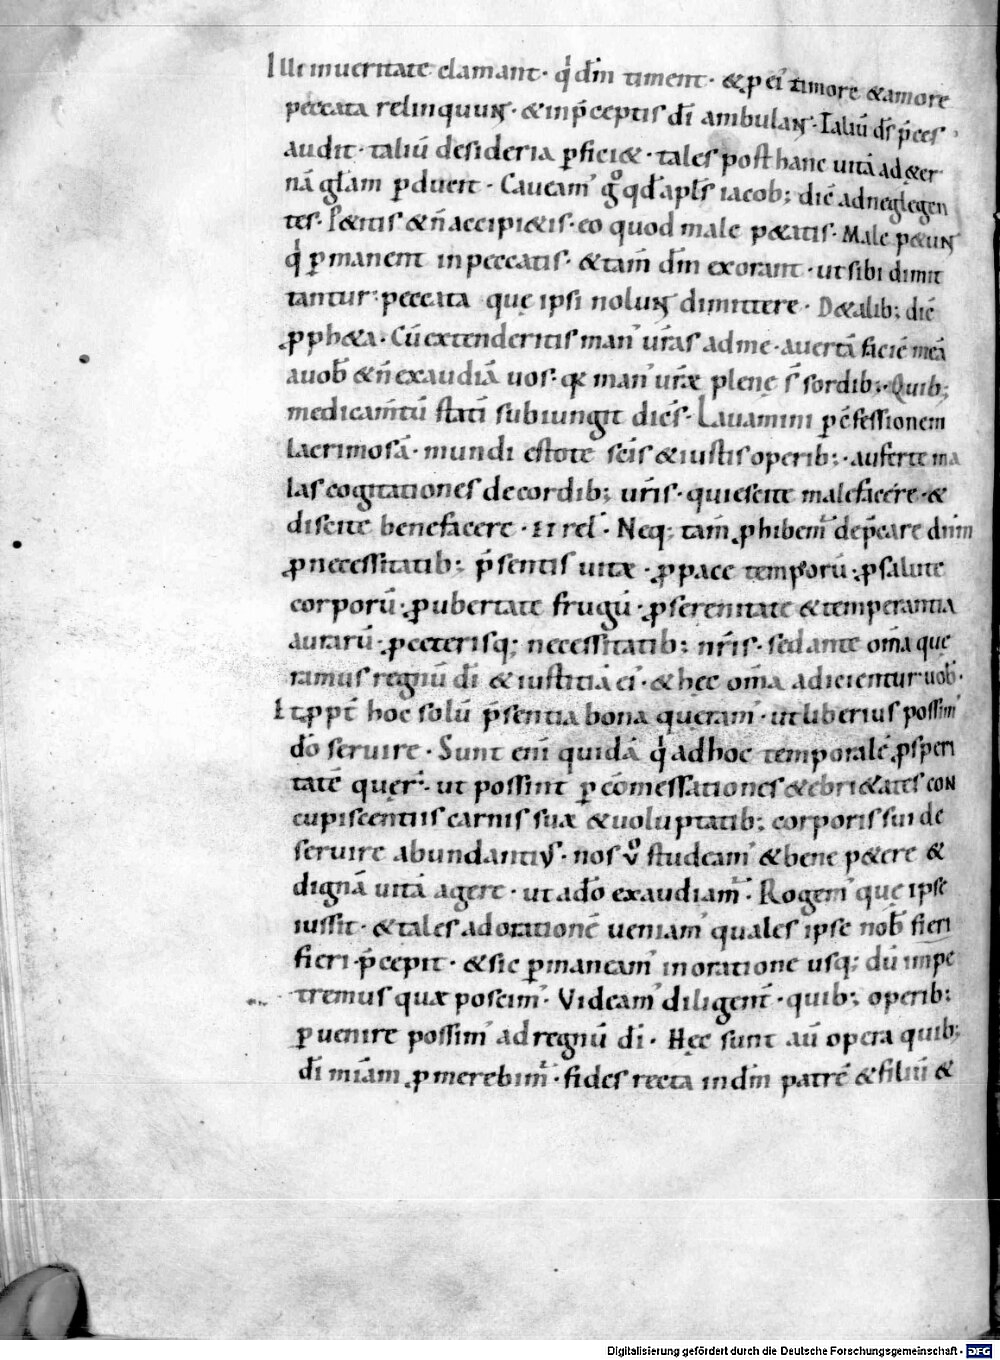 Illi inueritate clamant · q̇ dm̄ timent · & ꝑ ei' timore & amore
peccata relinquunt · & inp̄ceptis dī ambulant · Taliū ds̄ p̄ces
audit · taliū desideria ꝑfici& · tales post hanc uitā ad&er
nā gl̄am ꝑducit · Caueam' gͦ qd̄ apl̄s iacob; dic̄ adneglegen
tes · P&itis & n̄ accipi&is · eo quod male p&atis · Male p&unt
q̇ ꝑmanent inpeccatis · & tam̄ dm̄ exorant · ut sibi dimit
tantur · peccata quę ipsi nolunt dimittere · D&alib; dic̄
ꝓph&a · Cū extenderitis man' ur̄as adme · auertā faciē meā
auob̄ & n̄ exaudiā uos · qꝛ man' ur̄æ plenę s̄ sordib; · Quib;
medicam̄tū statī subiungit dicēs · Lauamini ꝑ c̄fessionem
lacrimosā · mundi estote sc̄is & iustis operib; · auferte ma
las cogitationes decordib; ur̄is · quiescite malefacere · &
discite benefacere · et rel̄ · Neq; tam̄ ꝓhibem' dep̄care dnm̄
ꝓ necessitatib; p̄sentis uitæ · ꝓ pace temporū · ꝓ salute
corporū · ꝓ ubertate frugū · ꝓ serenitate & temperantia
aurarū · ꝓ ceterisq; necessitatib; nr̄is · sed ante om̄a que
ramus regnū dī & iustitiā ei' · & hęc om̄a adicientur uob̄ ·
Et ꝓpt̄ hoc solū p̄sentia bona quęram' · ut liberius possim'
dō seruire · Sunt enī quidā q̇ adhoc temporalē ꝓsperi
tatē quer̄ · ut possint ꝑ cōmessationes & ebri&ates con
cupiscentiis carnis suæ & uoluptatib; corporis sui de
seruire abundantius · nos ū studeam' & bene p&ere &
dignā uitā agere · ut adō exaudiam' · Rogem' quę ipse
iussit · & tales adorationē ueniam' quales ipse nob̄ fieri
fieri p̄cepit · & sic ꝑmaneam' inoratione usq; dū impe
tremus quæ poscim' · Videam' diligent̄ · quib; operib;
ꝑuenire possim' ad regnū dī · Hęc sunt aū opera quib;
dī mīam ꝓmerebim' · fides recta indm̄ patrē & filiū &
Digitalisierung gefördert durch die Deutsche Forschungsgemeinschaft - DFG